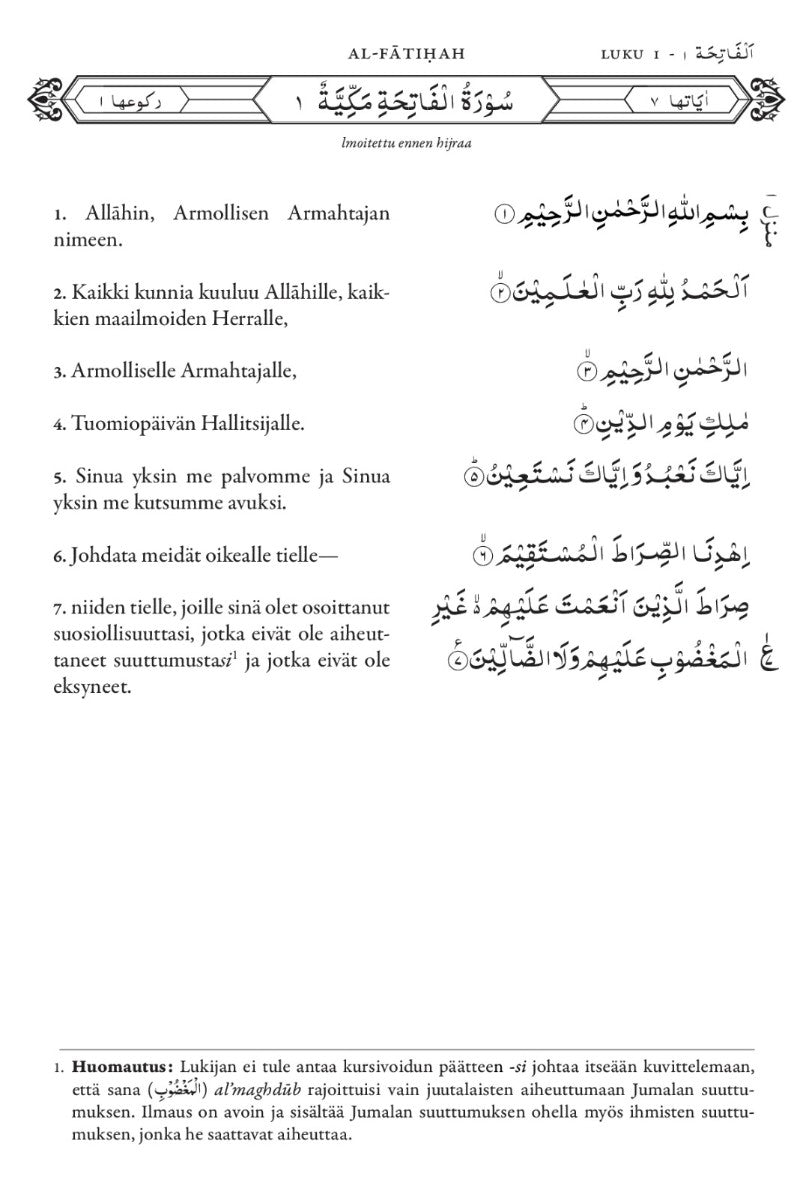 AL-FĀTIḤAH
LUKU 1 - ١ اَلْفَاتِحَة
اٰيَاتها ٧
سُوْرَةُ الْفَاتِحَةِ مَكِّيَّةٌ ١
ركوعها ١
lmoitettu ennen hijraa
1. Allāhin, Armollisen Armahtajan
nimeen.
بِسْمِ اللّٰهِ الرَّحْمٰنِ الرَّحِيْمِ ١
منزل ١
2. Kaikki kunnia kuuluu Allāhille, kaik-
kien maailmoiden Herralle,
اَلْحَمْدُ لِلّٰهِ رَبِّ الْعٰلَمِيْنَ ۙ ٢
3. Armolliselle Armahtajalle,
الرَّحْمٰنِ الرَّحِيْمِ ۙ ٣
4. Tuomiopäivän Hallitsijalle.
مٰلِكِ يَوْمِ الدِّيْنِ ؕ ۴
5. Sinua yksin me palvomme ja Sinua
yksin me kutsumme avuksi.
اِيَّاكَ نَعْبُدُ وَ اِيَّاكَ نَسْتَعِيْنُ ؕ ۵
6. Johdata meidät oikealle tielle—
اِهْدِنَا الصِّرَاطَ الْمُسْتَقِيْمَ ۙ ۶
7. niiden tielle, joille sinä olet osoittanut
suosiollisuuttasi, jotka eivät ole aiheut-
taneet suuttumustasi¹ ja jotka eivät ole
eksyneet.
صِرَاطَ الَّذِيْنَ اَنْعَمْتَ عَلَيْهِمْ ۬ۙ غَيْرِ
الْمَغْضُوْبِ عَلَيْهِمْ وَلَا الضَّآلِّيْنَ ٧
1. Huomautus: Lukijan ei tule antaa kursivoidun päätteen -si johtaa itseään kuvittelemaan,
että sana (الْمَغْضُوْبِ) al’maghdūb rajoittuisi vain juutalaisten aiheuttumaan Jumalan suuttu-
muksen. Ilmaus on avoin ja sisältää Jumalan suuttumuksen ohella myös ihmisten suuttu-
muksen, jonka he saattavat aiheuttaa.